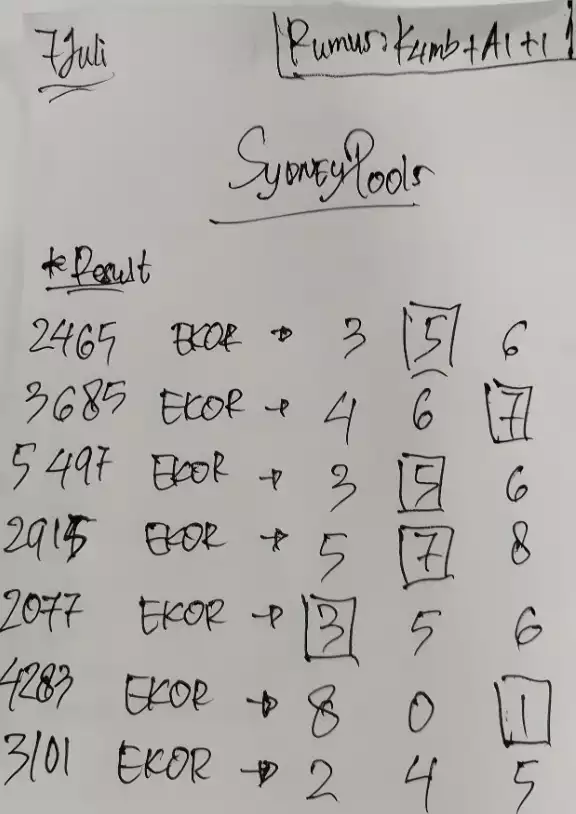 7 Juli
Rumus: K4mb+A1+1
SYDNEY Pools
* Result
2465 EKOR → 3 5 6
3685 EKOR → 4 6 7
5497 EKOR → 3 5 6
2915 EKOR → 5 7 8
2077 EKOR → 3 5 6
4283 EKOR → 8 0 1
3101 EKOR → 2 4 5